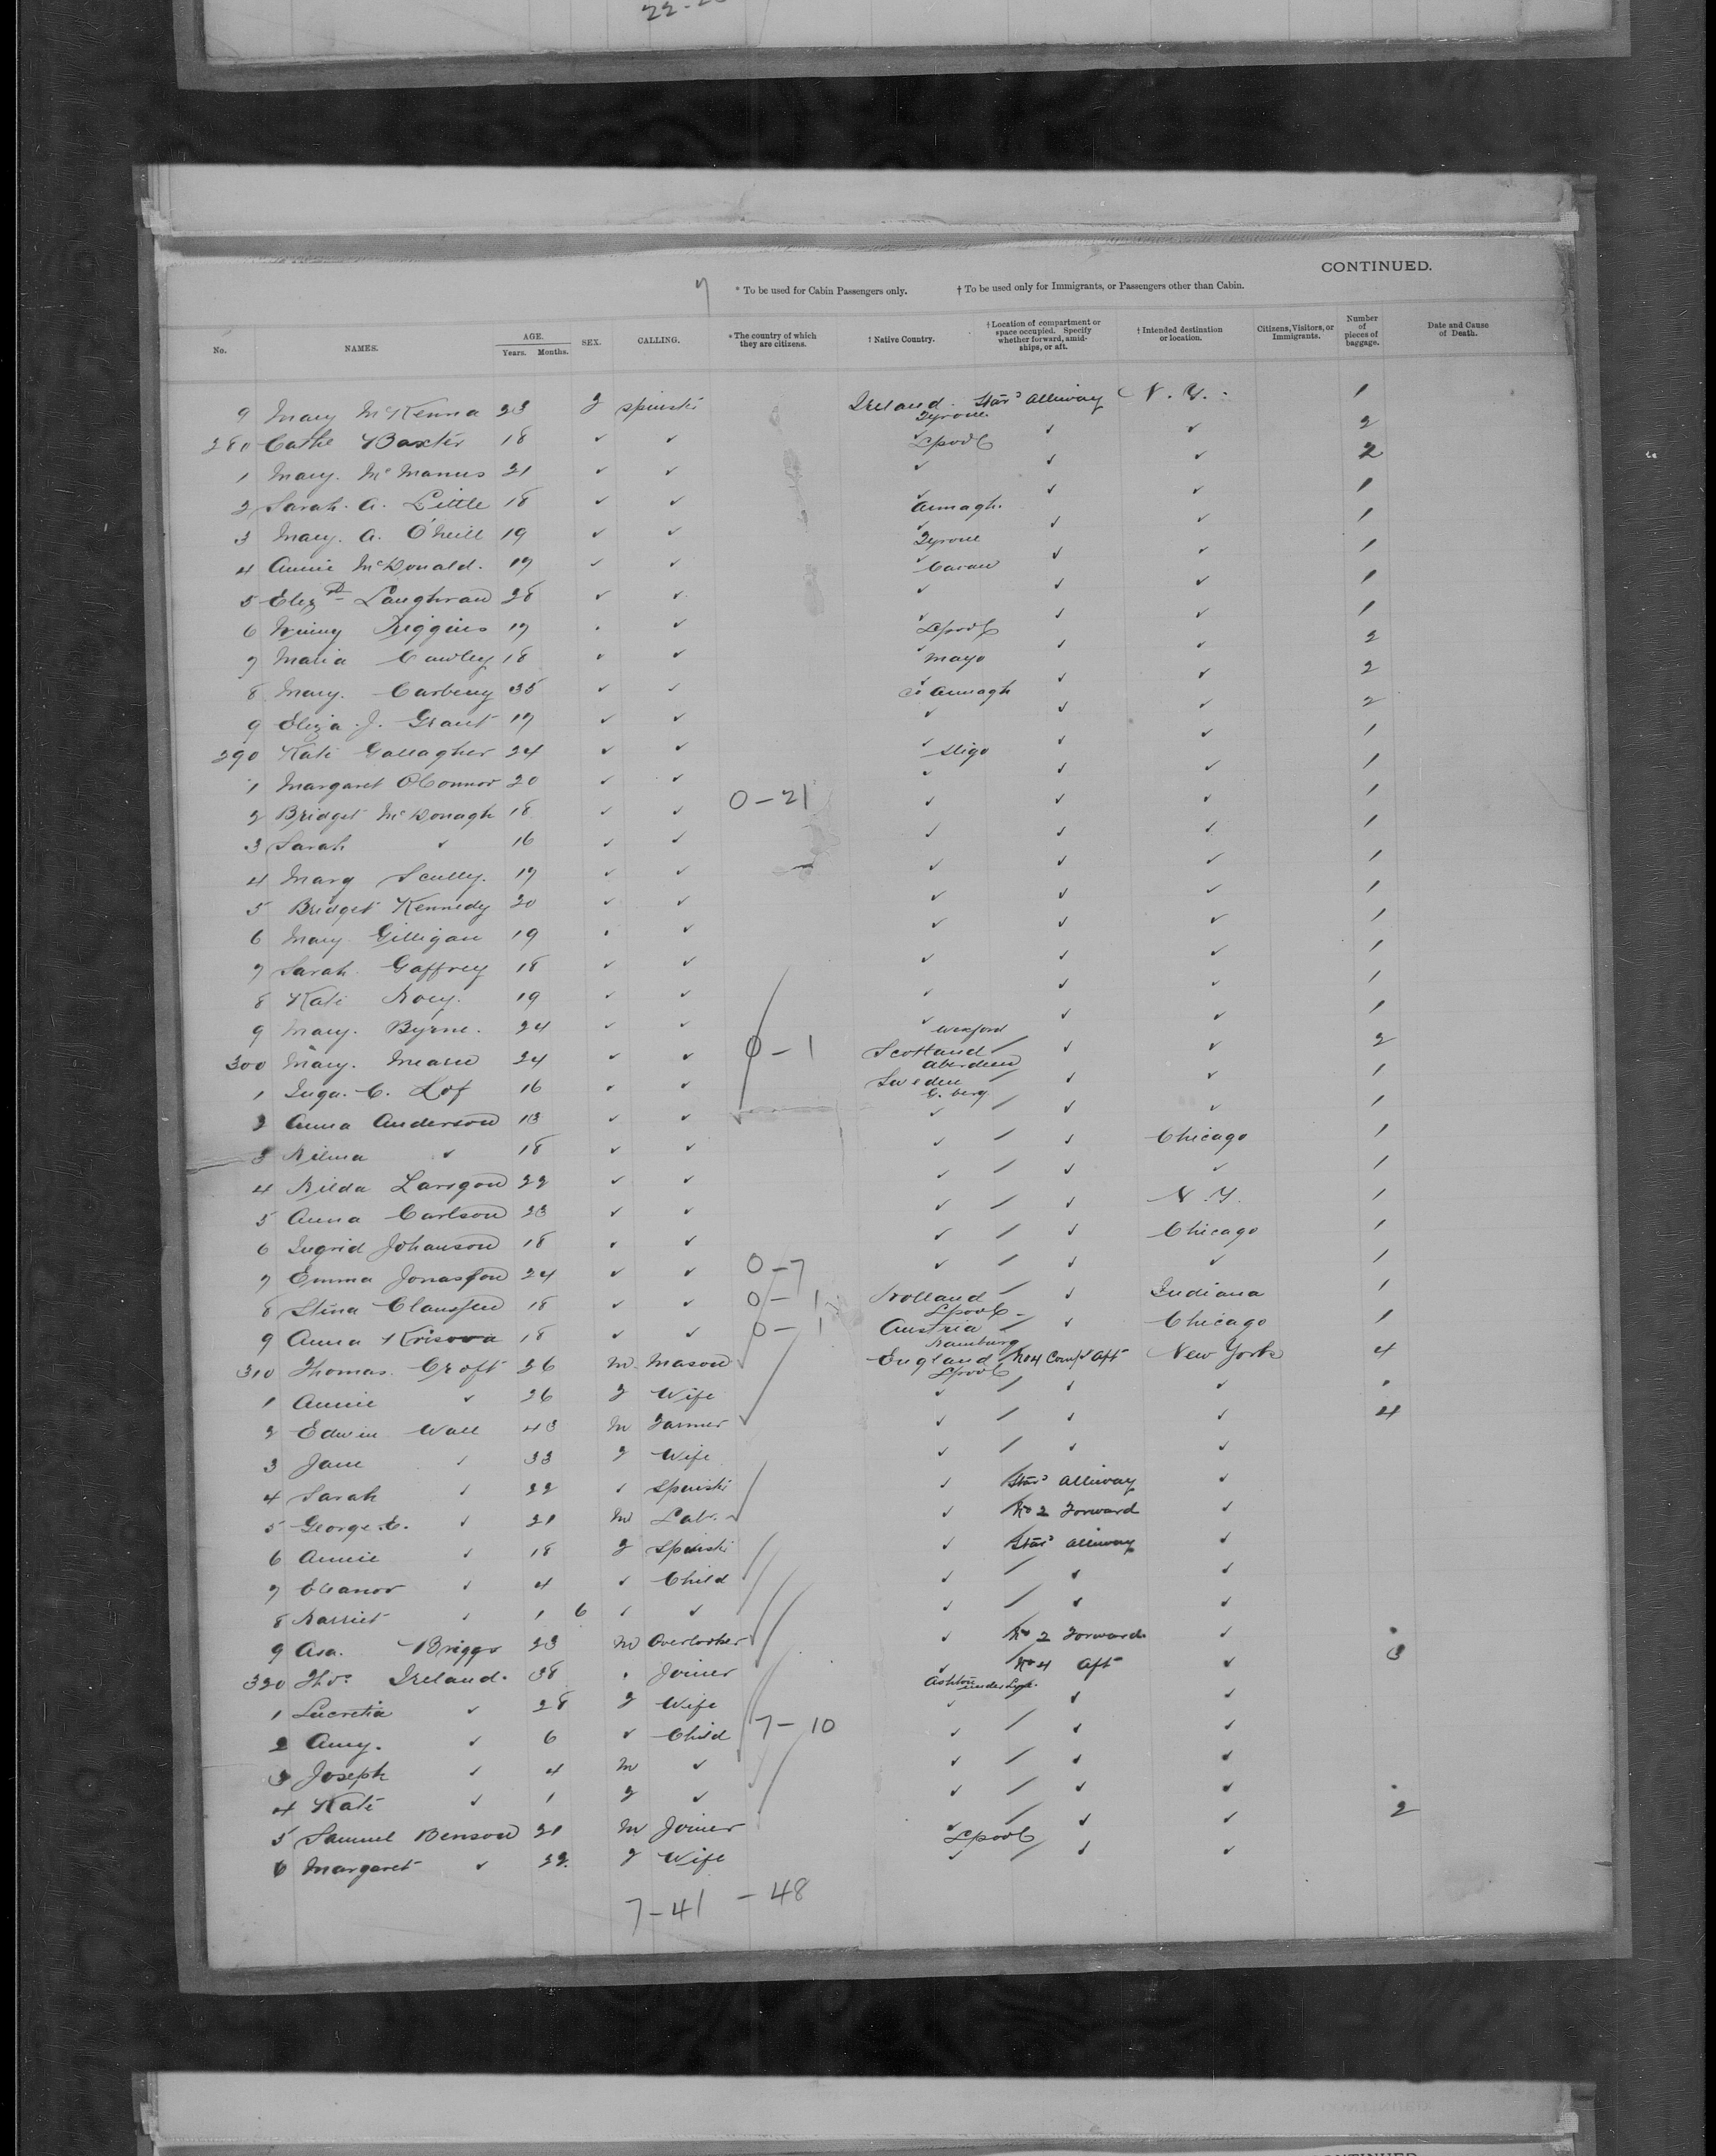 22-2
CONTINUED.
7 * To be used for Cabin Passengers only. † To be used only for Immigrants, or Passengers other than Cabin.
No. NAMES. AGE. Years. Months. SEX. CALLING. * The country of which they are citizens. † Native Country. † Location of compartment or space occupied. Specify whether forward, amidships, or aft. † Intended destination or location. Citizens, Visitors, or Immigrants. Number of pieces of baggage. Date and Cause of Death.
9 Mary McKenna 23 F Spinster Ireland. Tyrone Starb Alleway N.Y. 1
280 Cathe Baxter 18 ✓ ✓ ✓ L'pool ✓ ✓ 2
1 Mary. McManus 21 ✓ ✓ ✓ ✓ ✓ 2
2 Sarah. A. Little 18 ✓ ✓ ✓ Armagh. ✓ ✓ 1
3 Mary. A. O'Neill 19 ✓ ✓ ✓ Tyrone ✓ ✓ 1
4 Annie McDonald. 19 ✓ ✓ ✓ Cavan ✓ ✓ 1
5 Elizth Laughran 28 ✓ ✓ ✓ ✓ ✓ 1
6 Winny Higgins 19 ✓ ✓ ✓ L'pool ✓ ✓ 1
7 Maria Cawley 18 ✓ ✓ ✓ Mayo ✓ ✓ 2
8 Mary. Carbery 35 ✓ ✓ ✓ Armagh ✓ ✓ 2
9 Eliza. J. Grant 19 ✓ ✓ ✓ ✓ ✓ 2
290 Kate Gallagher 24 ✓ ✓ ✓ Sligo ✓ ✓ 1
1 Margaret O'Connor 20 ✓ ✓ ✓ ✓ ✓ 1
2 Bridget McDonagh 18 ✓ ✓ 0-21 ✓ ✓ ✓ 1
3 Sarah ✓ 16 ✓ ✓ ✓ ✓ ✓ 1
4 Mary Scully. 19 ✓ ✓ ✓ ✓ ✓ 1
5 Bridget Kennedy 20 ✓ ✓ ✓ ✓ ✓ 1
6 Mary Gilligan 19 ✓ ✓ ✓ ✓ ✓ 1
7 Sarah Gaffrey 18 ✓ ✓ ✓ ✓ ✓ 1
8 Kate 19 ✓ ✓ ✓ ✓ ✓ 1
9 Mary. Byrne. 24 ✓ ✓ ✓ Wexford ✓ ✓ 1
300 Mary. Mearn 24 ✓ ✓ 0-1 Scotland Aberdeen ✓ ✓ 2
1 Inga. C. Lof 16 ✓ ✓ Sweden G. berg ✓ ✓ 1
2 Anna Anderson 13 ✓ ✓ ✓ ✓ ✓ 1
3 Hilma ✓ 18 ✓ ✓ ✓ ✓ Chicago 1
4 Hilda Larsson 22 ✓ ✓ ✓ ✓ ✓ 1
5 Anna Carlson 23 ✓ ✓ ✓ ✓ N.Y. 1
6 Ingrid Johanson 18 ✓ ✓ ✓ ✓ Chicago 1
7 Emma Jonasson 24 ✓ ✓ 0-7 ✓ ✓ ✓ 1
8 Stina Claussen 18 ✓ ✓ 0-1 Holland L'pool ✓ Indiana 1
9 Anna Krisova 18 ✓ ✓ 0-1 Austria Hamburg ✓ Chicago 1
310 Thomas. Croft 26 M. Mason England L'pool No 4 Compt Aft New York 4
1 Annie ✓ 26 F Wife ✓ ✓ ✓
2 Edwin Wall 43 M Farmer ✓ ✓ ✓ 4
3 Jane ✓ 33 F Wife ✓ ✓ ✓
4 Sarah ✓ 22 ✓ Spinster ✓ Starb Alleway ✓
5 George. E. ✓ 21 M Labr. ✓ No 2 Forward ✓
6 Annie ✓ 18 F Spinster ✓ Starb Alleway ✓
7 Eleanor ✓ 4 ✓ Child ✓ ✓ ✓
8 Harriet ✓ 1 6 ✓ ✓ ✓ ✓ ✓
9 Asa. Briggs 23 M Overlooker ✓ No 2 Forward ✓
320 Thos. Ireland. 38 Joiner ✓ Ashton under Lyne. No 4 Aft ✓ 3
1 Lucretia ✓ 28 F Wife ✓ ✓ ✓
2 Amy. ✓ 6 ✓ Child 7-10 ✓ ✓ ✓
3 Joseph ✓ 4 M ✓ ✓ ✓ ✓
4 Kate ✓ 1 F ✓ ✓ ✓ ✓
5 Samuel Benson 21 M Joiner ✓ L'pool ✓ ✓ 2
6 Margaret ✓ 22 F Wife ✓ ✓ ✓
7-41 - 48
CONTINUED